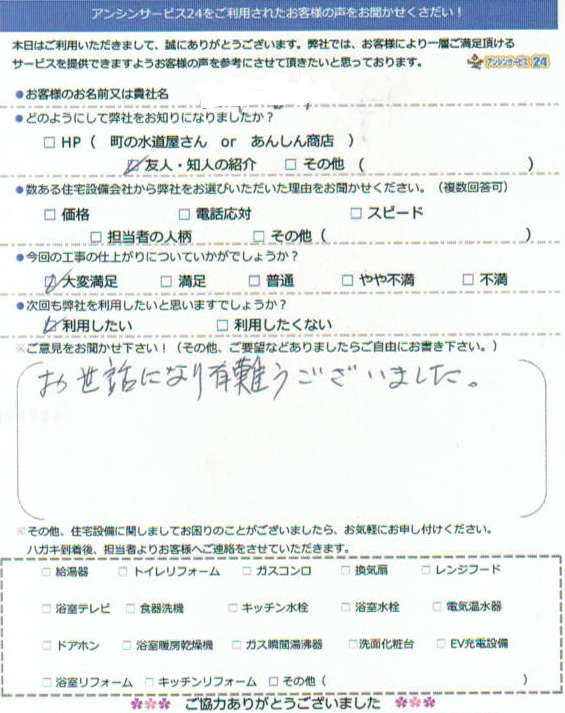 アンシンサービス24をご利用されたお客様の声をお聞かせくさだい！
本日はご利用いただきまして、誠にありがとうございます。弊社では、お客様により一層ご満足頂ける
サービスを提供できますようお客様の声を参考にさせて頂きたいと思っております。 アンシンサービス24
●お客様のお名前又は貴社名
●どのようにして弊社をお知りになりましたか？
□ HP （ 町の水道屋さん or あんしん商店 ）
☑ 友人・知人の紹介 □ その他 （ ）
●数ある住宅設備会社から弊社をお選びいただいた理由をお聞かせください。（複数回答可）
□ 価格 □ 電話応対 □ スピード
□ 担当者の人柄 □ その他（ ）
●今回の工事の仕上がりについていかがでしょうか？
☑ 大変満足 □ 満足 □ 普通 □ やや不満 □ 不満
●次回も弊社を利用したいと思いますでしょうか？
☑ 利用したい □ 利用したくない
※ご意見をお聞かせ下さい！（その他、ご要望などありましたらご自由にお書き下さい。）
お世話になり有難うございました。
※その他、住宅設備に関しましてお困りのことがございましたら、お気軽にお申し付けください。
ハガキ到着後、担当者よりお客様へご連絡をさせていただきます。
□ 給湯器 □ トイレリフォーム □ ガスコンロ □ 換気扇 □ レンジフード
□ 浴室テレビ □ 食器洗機 □ キッチン水栓 □ 浴室水栓 □ 電気温水器
□ ドアホン □ 浴室暖房乾燥機 □ ガス瞬間湯沸器 □ 洗面化粧台 □ EV充電設備
□ 浴室リフォーム □ キッチンリフォーム □ その他（ ）
ご協力ありがとうございました